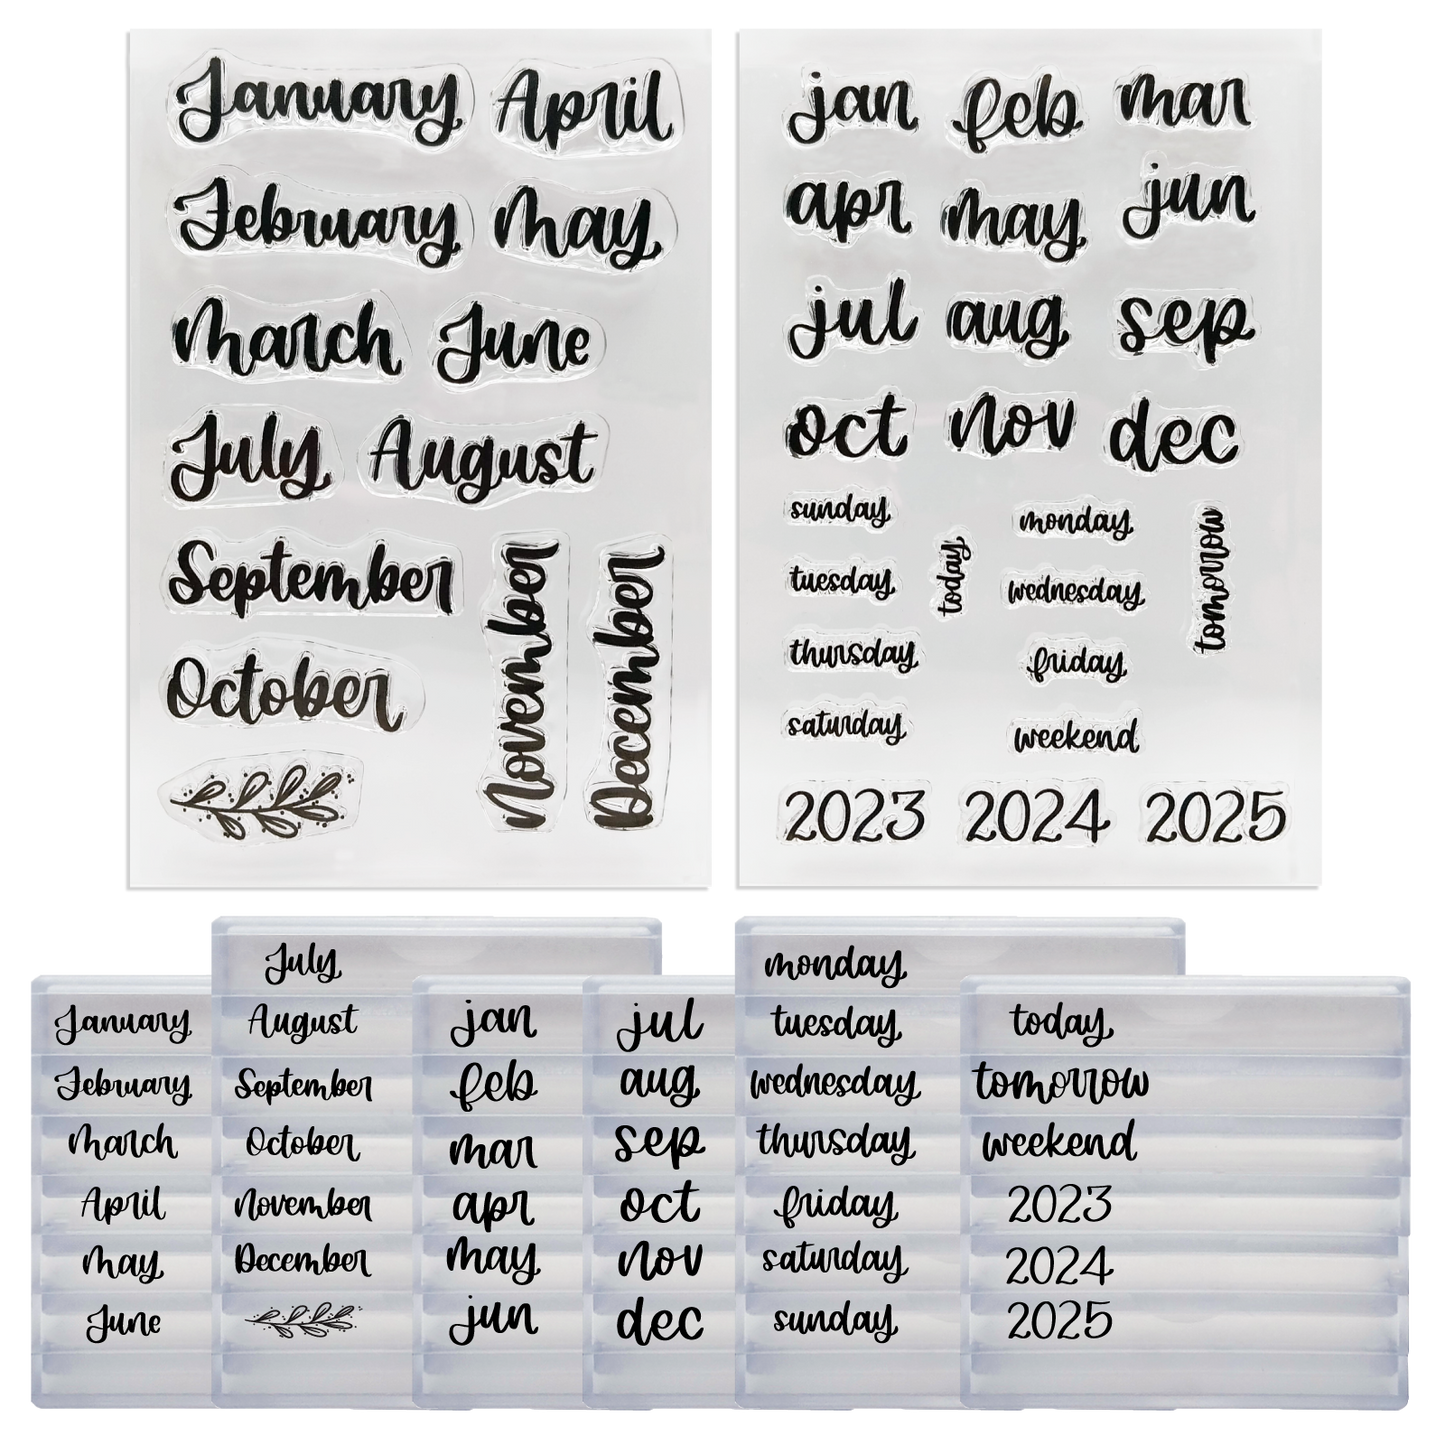 January April
February May
March June
July August
September
October
November
December
jan feb mar
apr may jun
jul aug sep
oct nov dec
sunday monday
tuesday today wednesday tomorrow
thursday friday
saturday weekend
2023 2024 2025
January
February
March
April
May
June
July
August
September
October
November
December
jan
feb
mar
apr
may
jun
jul
aug
sep
oct
nov
dec
monday
tuesday
wednesday
thursday
friday
saturday
sunday
today
tomorrow
weekend
2023
2024
2025